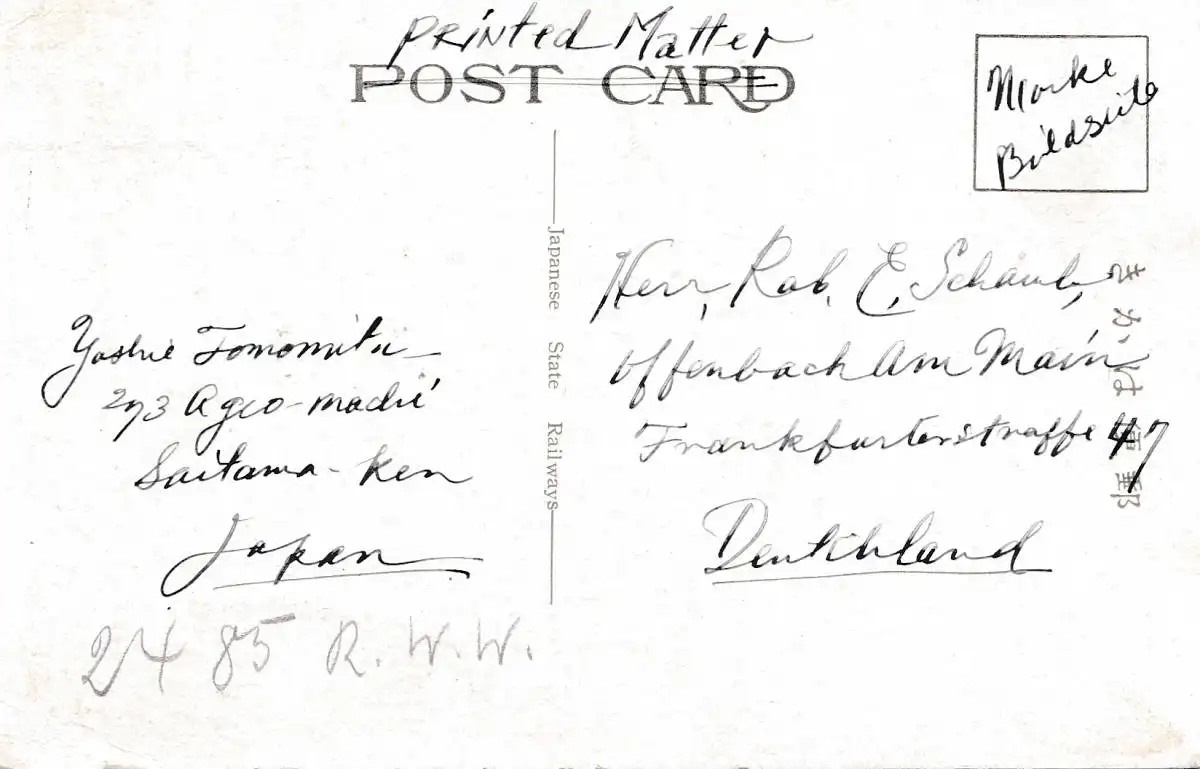 Printed Matter
POST CARD
Marke
Bildseite
Japanese State Railways
郵便はかき
Herr, Rob. E. Schaub,
Offenbach Am Main
Frankfurterstraffe 47
Deutchland
Yoshie Tomomitu
273 Ageo-machi
Saitama-Ken
Japan
2485 R.W.W.